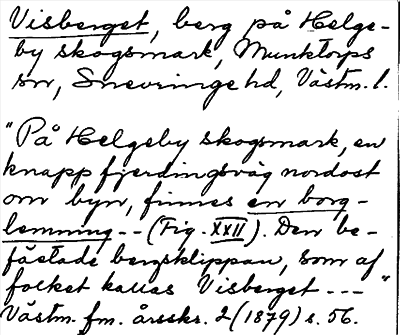 Visberget, berg på Helge-
by skogsmark, Munktorps
sn, Snevringe hd, Västm. l.
"På Helgeby skogsmark, en
knapp fjerdingsväg nordost
om byn, finnes en borg-
lemning -- (Fig. XXII). Den be-
fästade bergsklippan, som af
folket kallas Visberget --- "
Västm. fm. årsskr. 2 (1879) s. 56.